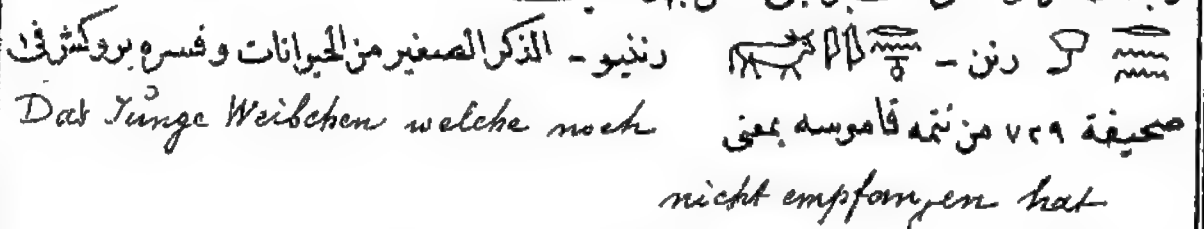 رنن - رننيو - الذكر الصغير من الحيوانات وفسره بروكش فى
صحيفة ٧٢٩ من تتمه قاموسه بمعنى Das Junge Weibchen welche noch
nicht empfangen hat